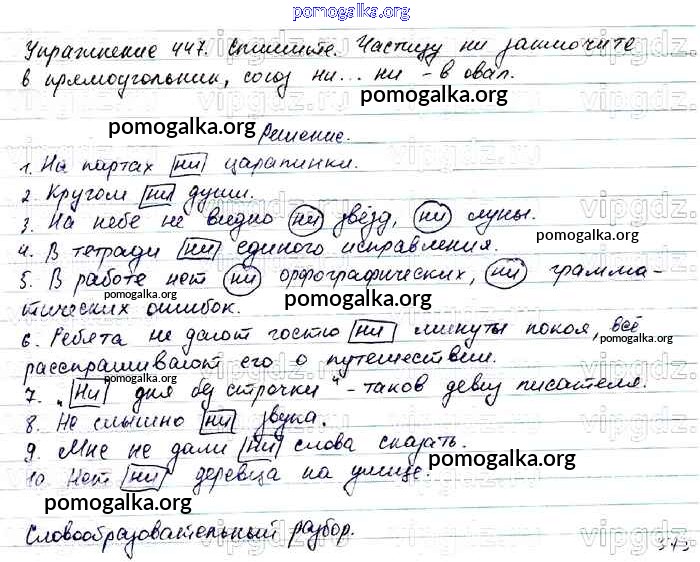 pomogalka.org
Упражнение 447. Спишите. Частицу ни заключите
в прямоугольник, союз ни... ни - в овал.
pomogalka.org
pomogalka.org
Решение.
1. На партах ни царапинки.
2. Кругом ни души.
3. На небе не видно ни звёзд, ни луны.
pomogalka.org
4. В тетради ни единого исправления.
5. В работе нет ни орфографических, ни грамма-
pomogalka.org
pomogalka.org
тических ошибок.
6. Ребята не дают гостю ни минуты покоя, всё
pomogalka.org
расспрашивают его о путешествии.
pomogalka.org
7. „Ни дня без строчки" - таков девиз писателя.
8. Не слышно ни звука.
pomogalka.org
9. Мне не дали ни слова сказать.
10. Нет ни деревца на улице.
pomogalka.org
pomogalka.org
Словообразовательный разбор.
pomogalka.org
373
vipgdz.ru